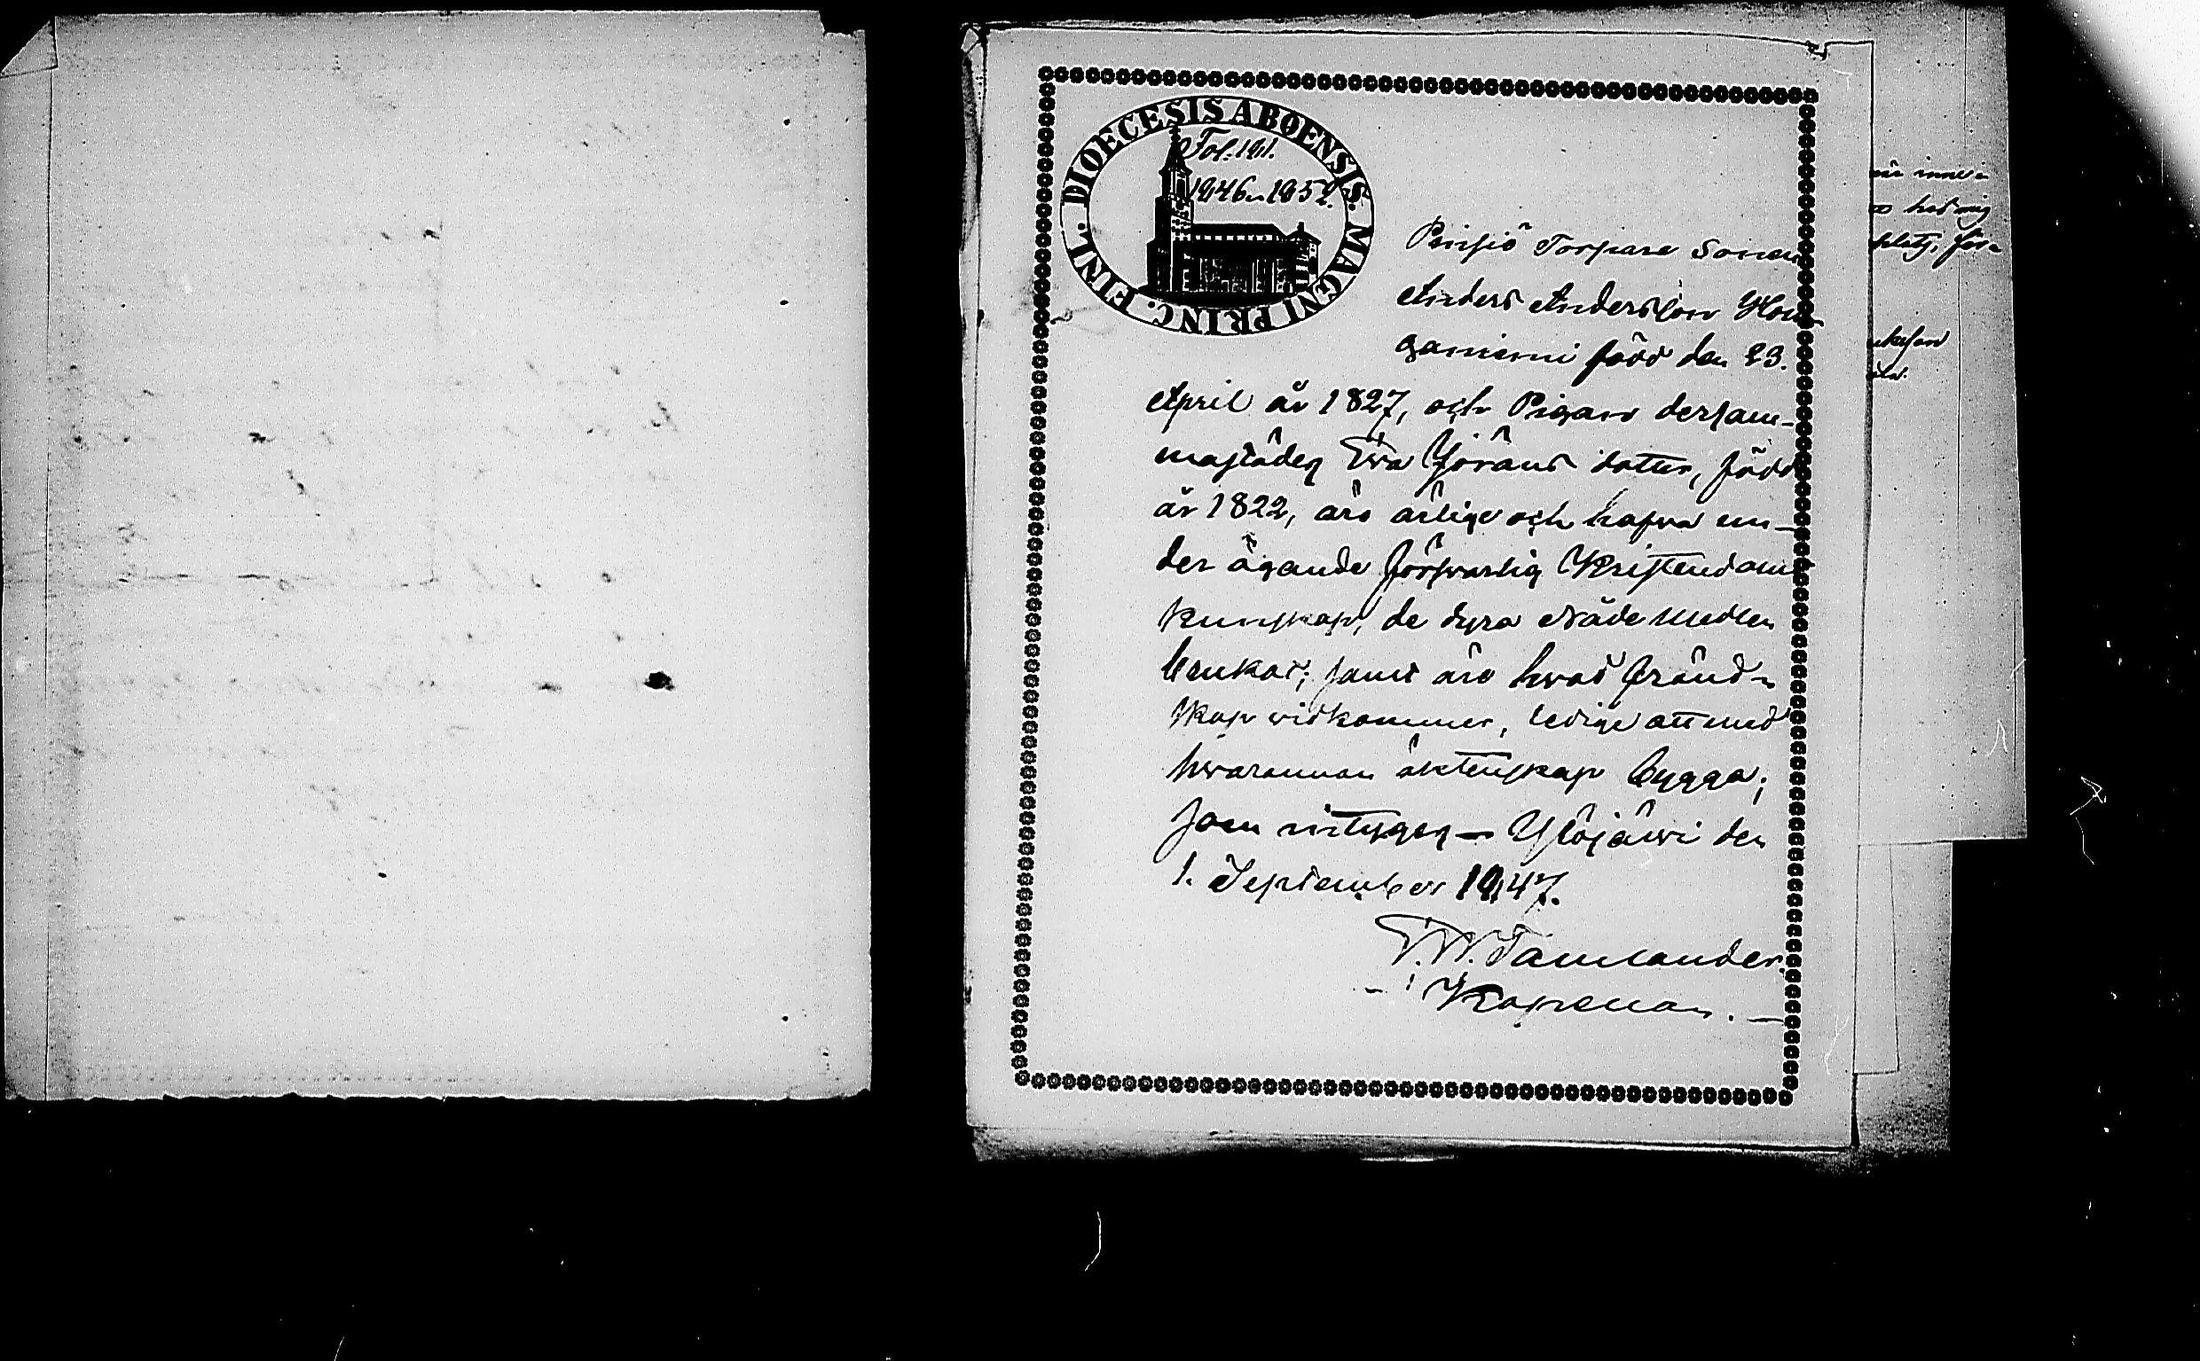 DIOECESIS ABOENSIS. MAGNI PRINC. FINL.
Fol. 191.
1846-1852.
Pinsiö Torpare Sonen
Anders Andersson
född den 23.
April år 1827, och Pigan dersam-
mastädes Eva Jörans dotter, född
år 1822, äro ärlige och hafva un-
der ägande försvarlig Kristendoms
kunskap, de dyra Nådemedlen
brukat; samt äro hvad fränd-
skap vidkommer, ledige att med
hvarannan äktenskap bygga;
som intygas Ylöjärvi den
1. September 1847.
Tamlander.
Kapellan.